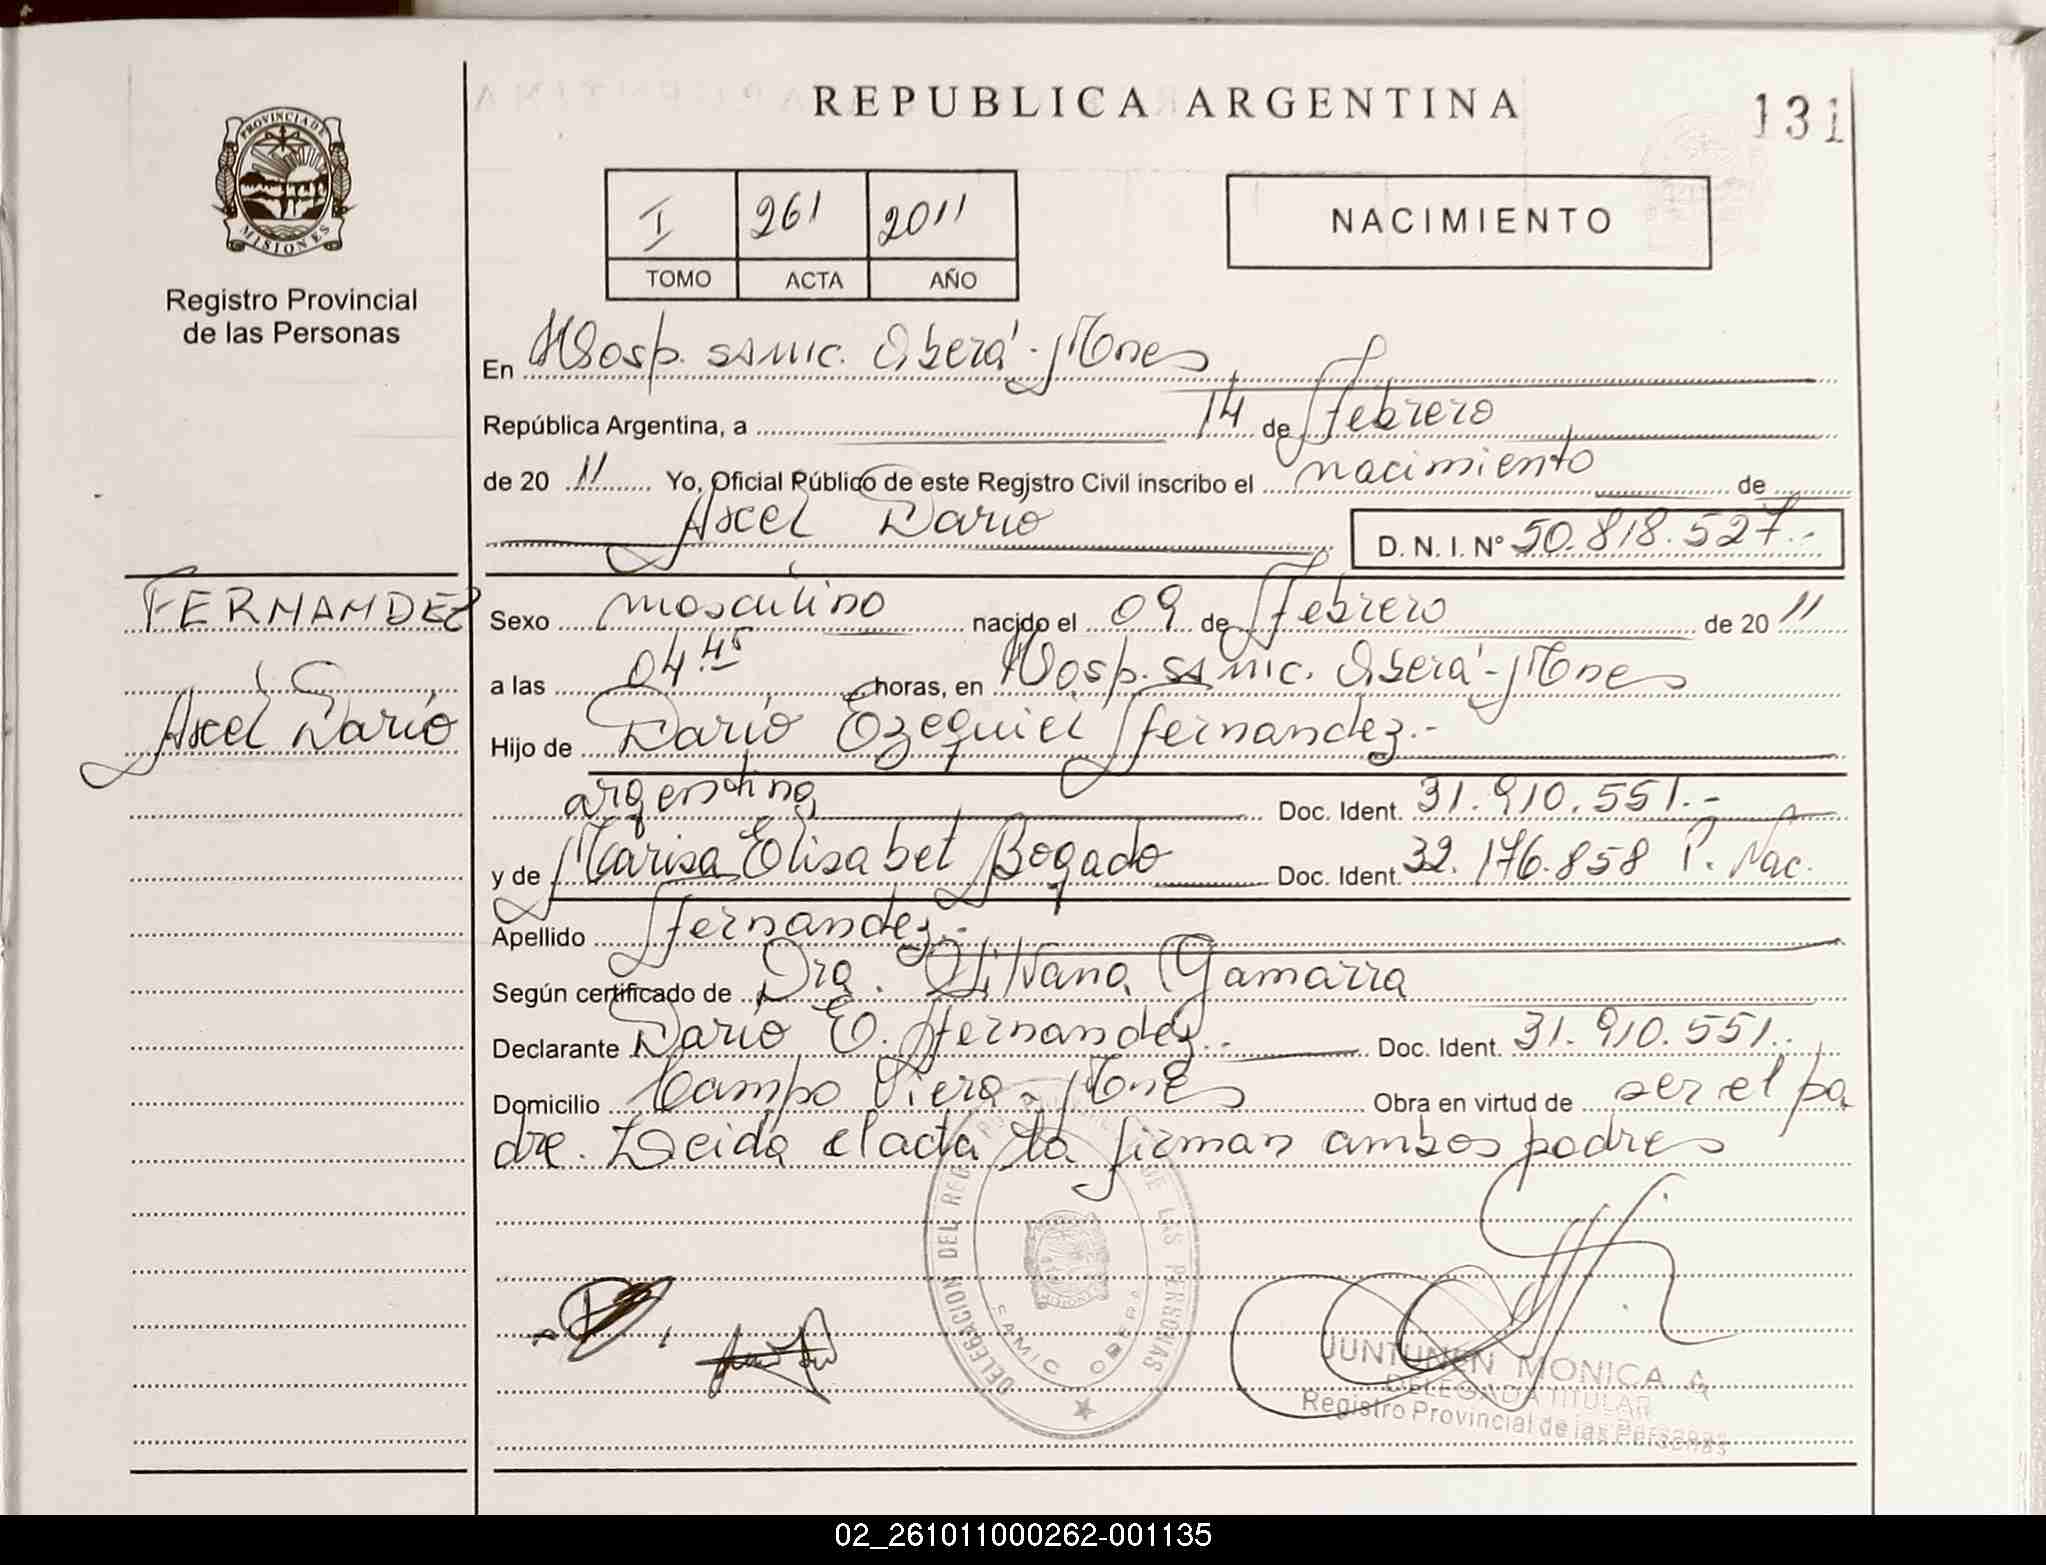 REPUBLICA ARGENTINA
131
PROVINCIA DE
MISIONES
Registro Provincial
de las Personas
I 261 2011
TOMO ACTA AÑO
NACIMIENTO
En Hosp. SAMIC. Oberá - Mnes
República Argentina, a 14 de febrero
de 20 11 Yo, Oficial Público de este Registro Civil inscribo el nacimiento de
Axel Dario D. N. I. N° 50.818.527.-
FERNANDEZ
Axel Darío
Sexo masculino nacido el 09 de febrero de 20 11
a las 04 45 horas, en Hosp. SAMIC. Oberá - Mnes
Hijo de Darío Ezequiel Fernandez.-
argentina Doc. Ident. 31.910.551.-
y de Marisa Elisabet Bogado Doc. Ident. 32.176.858 P. Nac.
Apellido Fernandez.-
Según certificado de Dra. Silvana Gamarra
Declarante Darío E. Fernandez.- Doc. Ident. 31.910.551.
Domicilio Campo Viera - Mnes Obra en virtud de ser el pa
dre. Leida el acta la firman ambos padres
DELEGACION DEL REG. DE LAS PERSONAS
SAMIC OBERA
JUNTUNEN MONICA A
DELEGADA TITULAR
Registro Provincial de las Personas
02_261011000262-001135